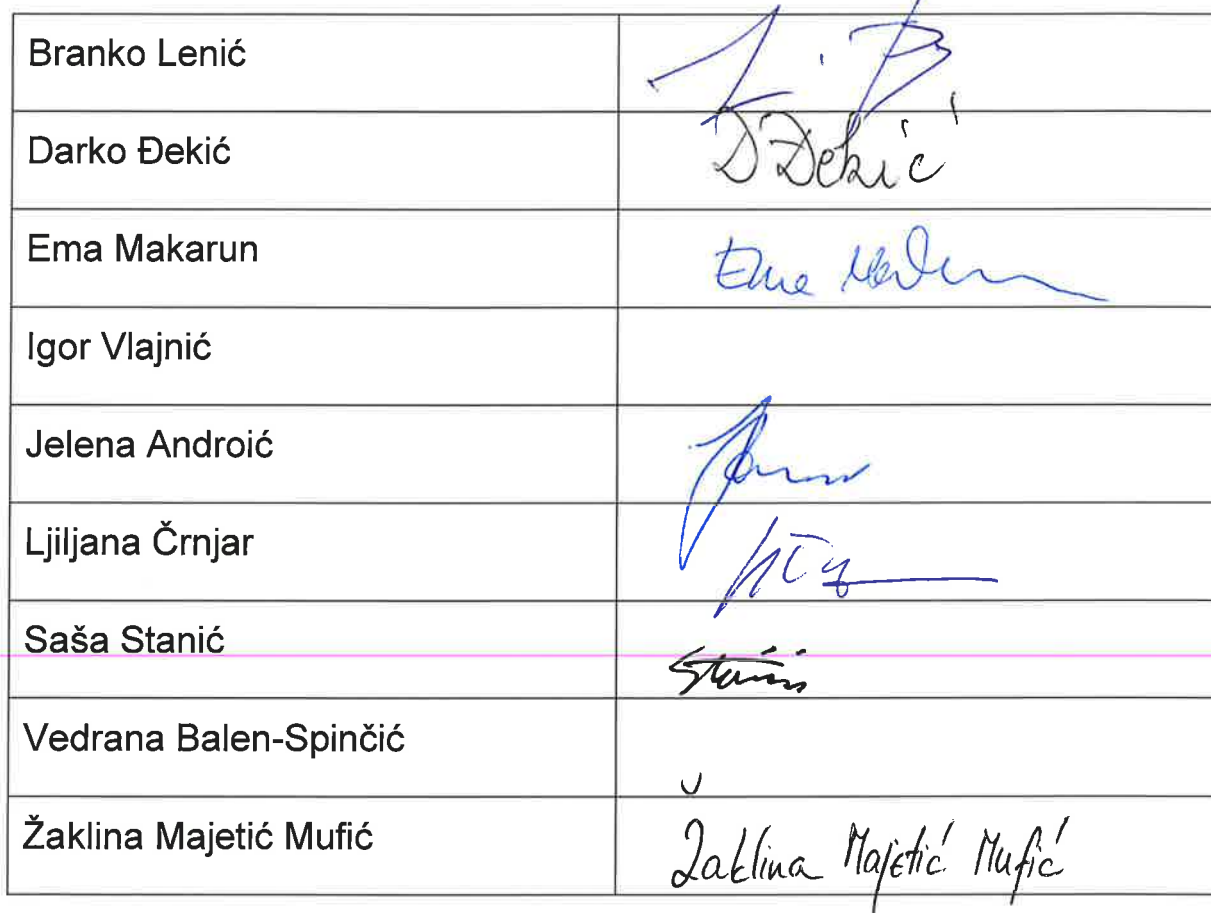 Branko Lenić
Darko Đekić D Đekić
Ema Makarun Ema
Igor Vlajnić
Jelena Androić
Ljiljana Črnjar
Saša Stanić Stanić
Vedrana Balen-Spinčić
Žaklina Majetić Mufić Žaklina Majetić Mufić